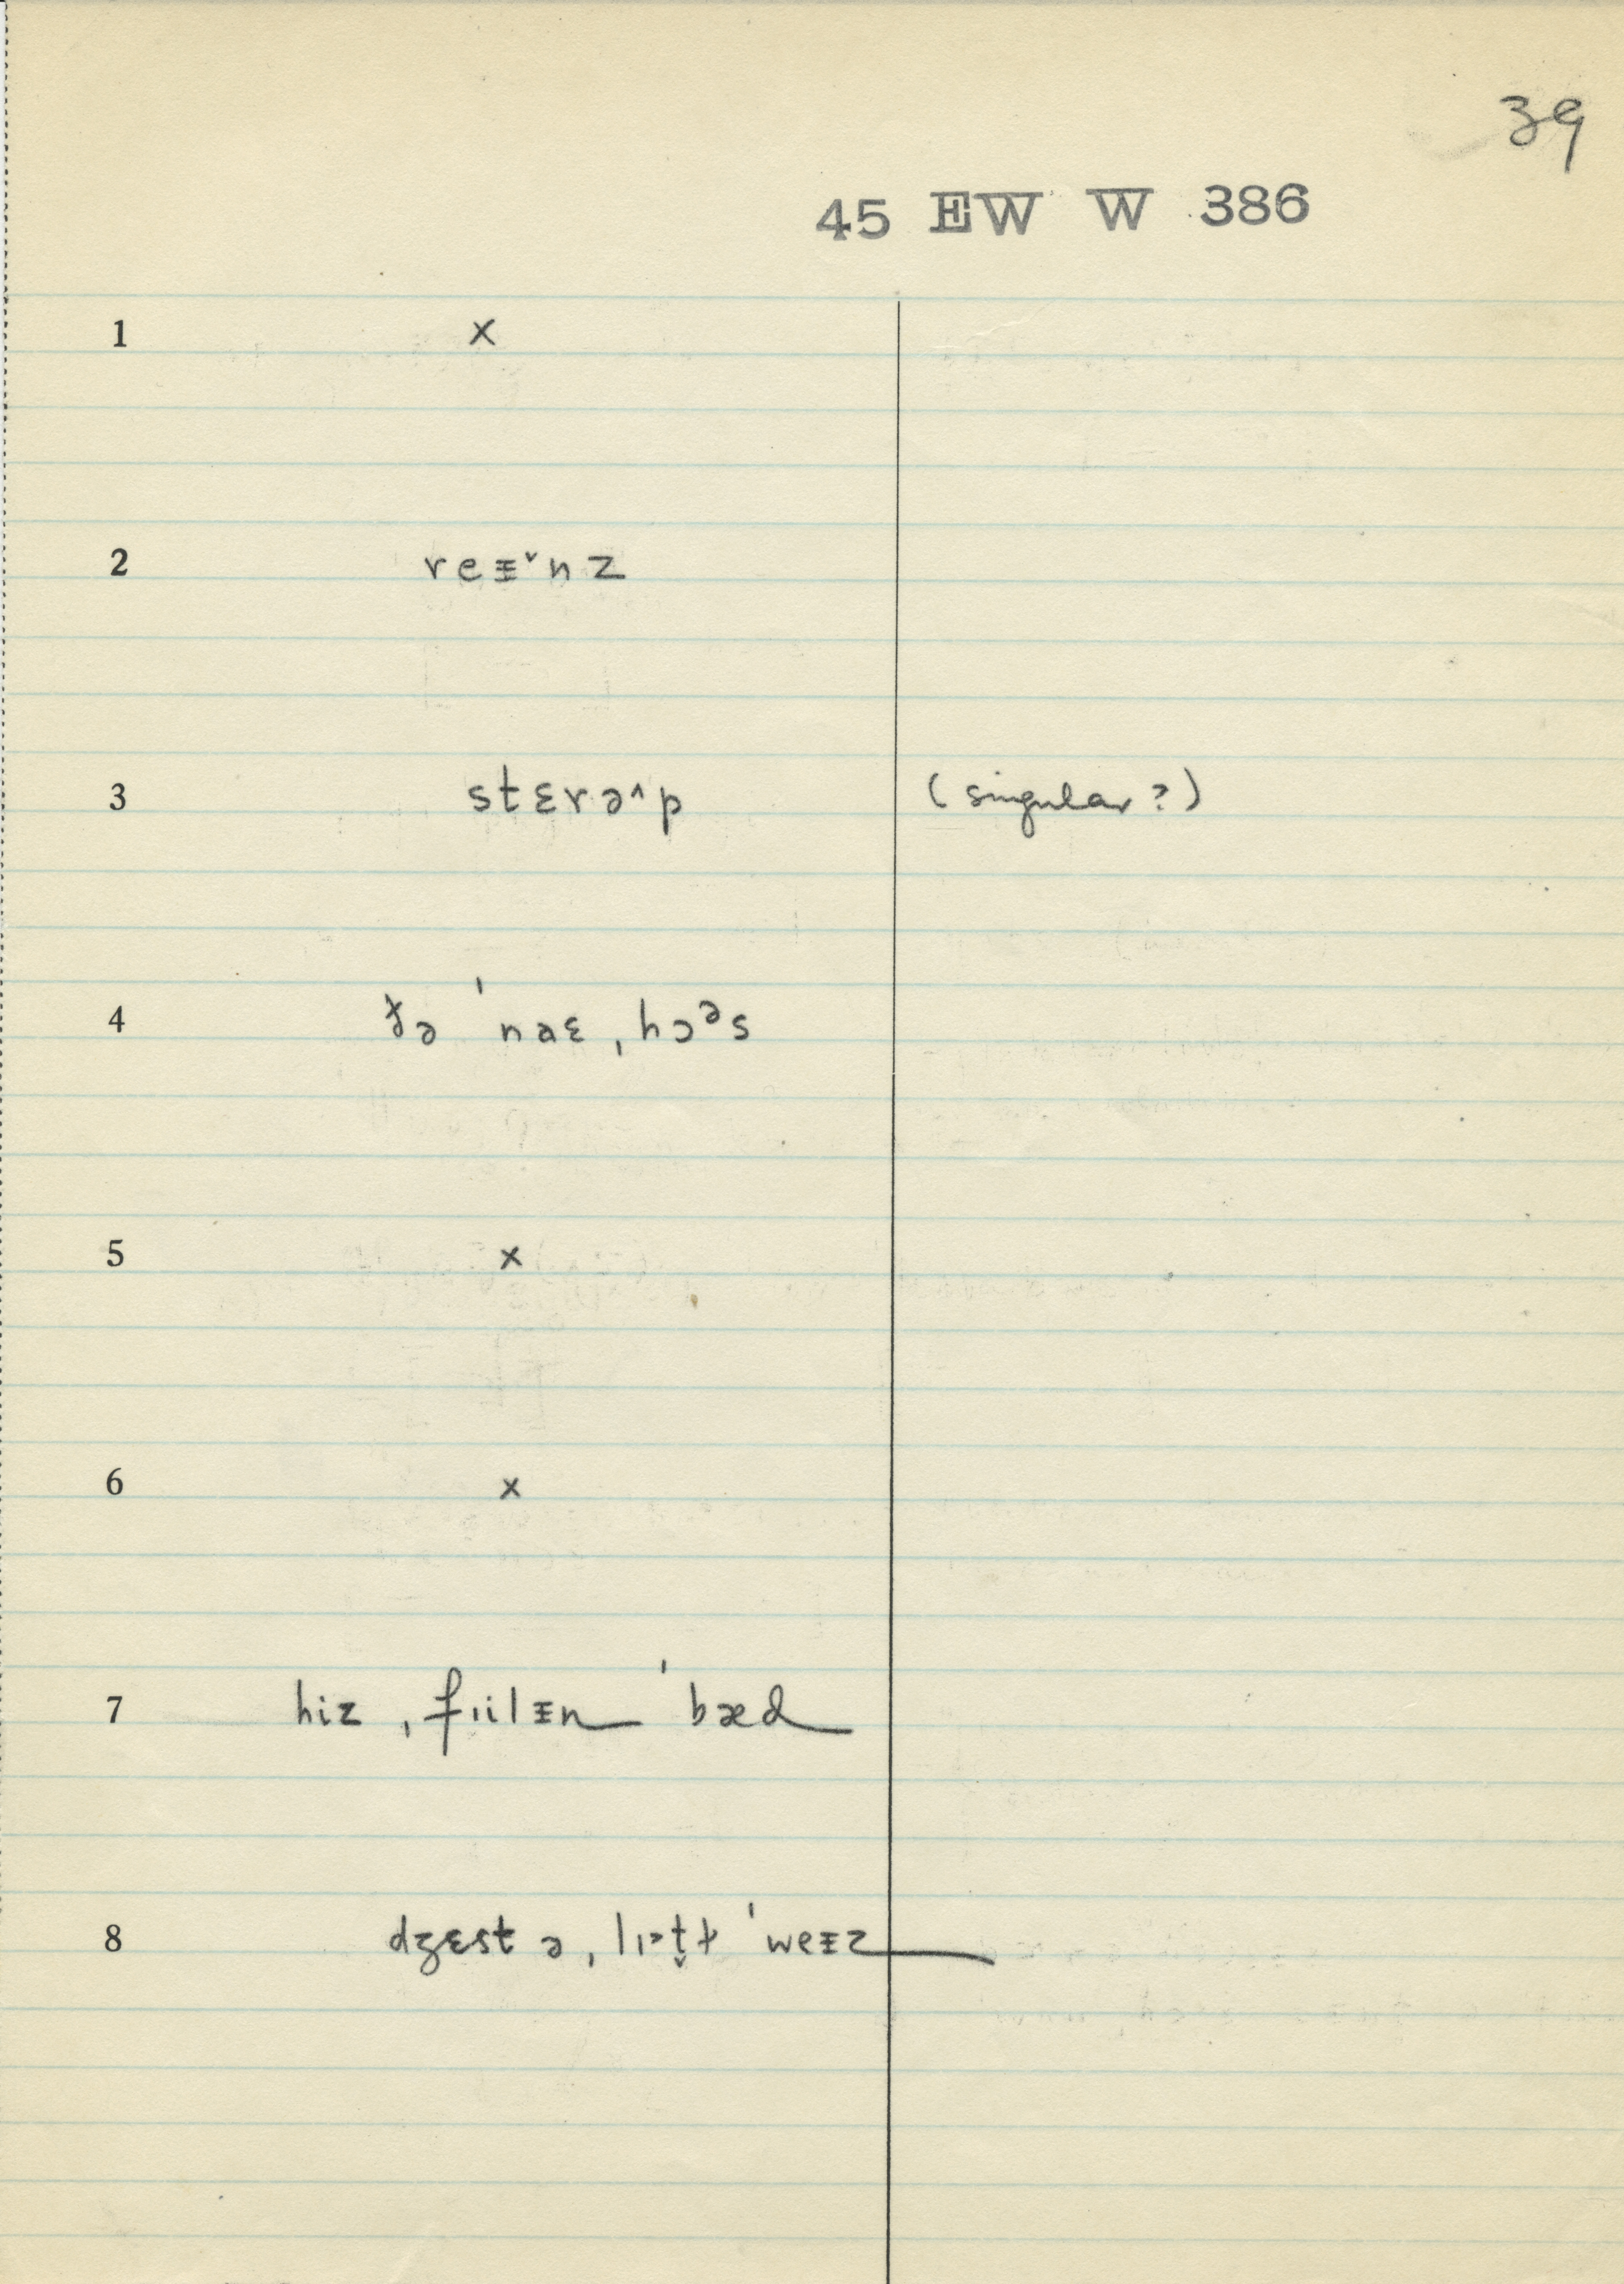 39
45 EW W 386
1 x
2 reᵻ˅nz
3 stɛrə˄p (singular?)
4 ðə ˈnaɛˌhɔᵊs
5 x
6 x
7 hiz ˌfɪilᵻn ˈbæd
8 dʒɛst ə ˌlɪt̬ɫ ˈweᵻz